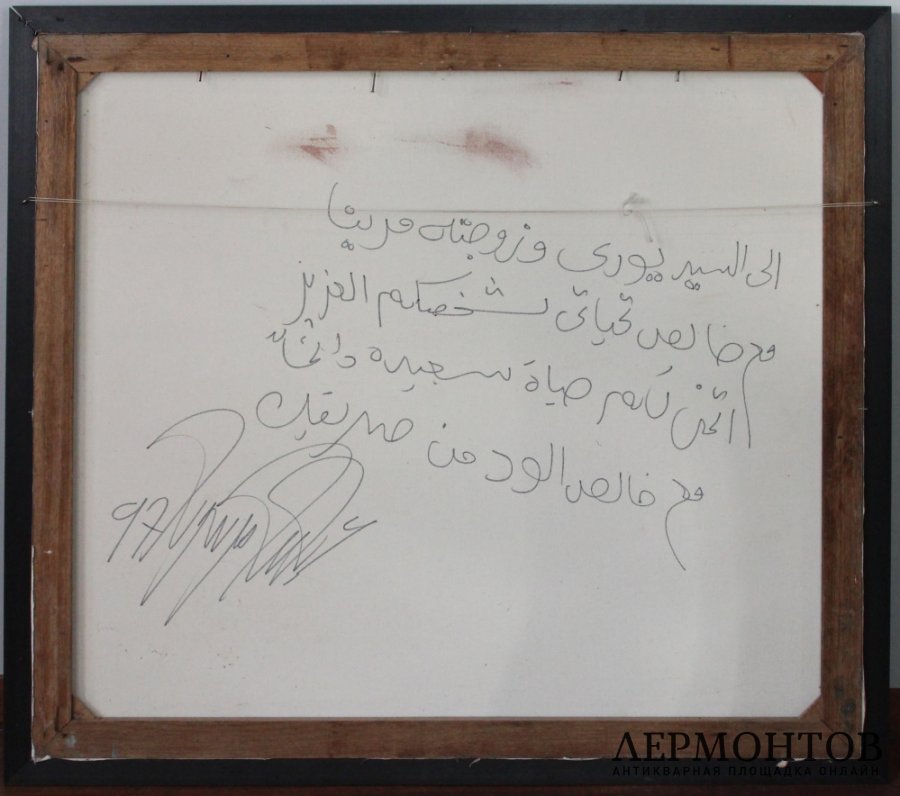 الى السيد يوري وزوجته مرينا
مع خالص تحياتي لشخصكم العزيز
اتمنى لكم حياة سعيده دائماً
مع خالص الود من صديقك
97
ЛЕРМОНТОВ
АНТИКВАРНАЯ ПЛОЩАДКА ОНЛАЙН